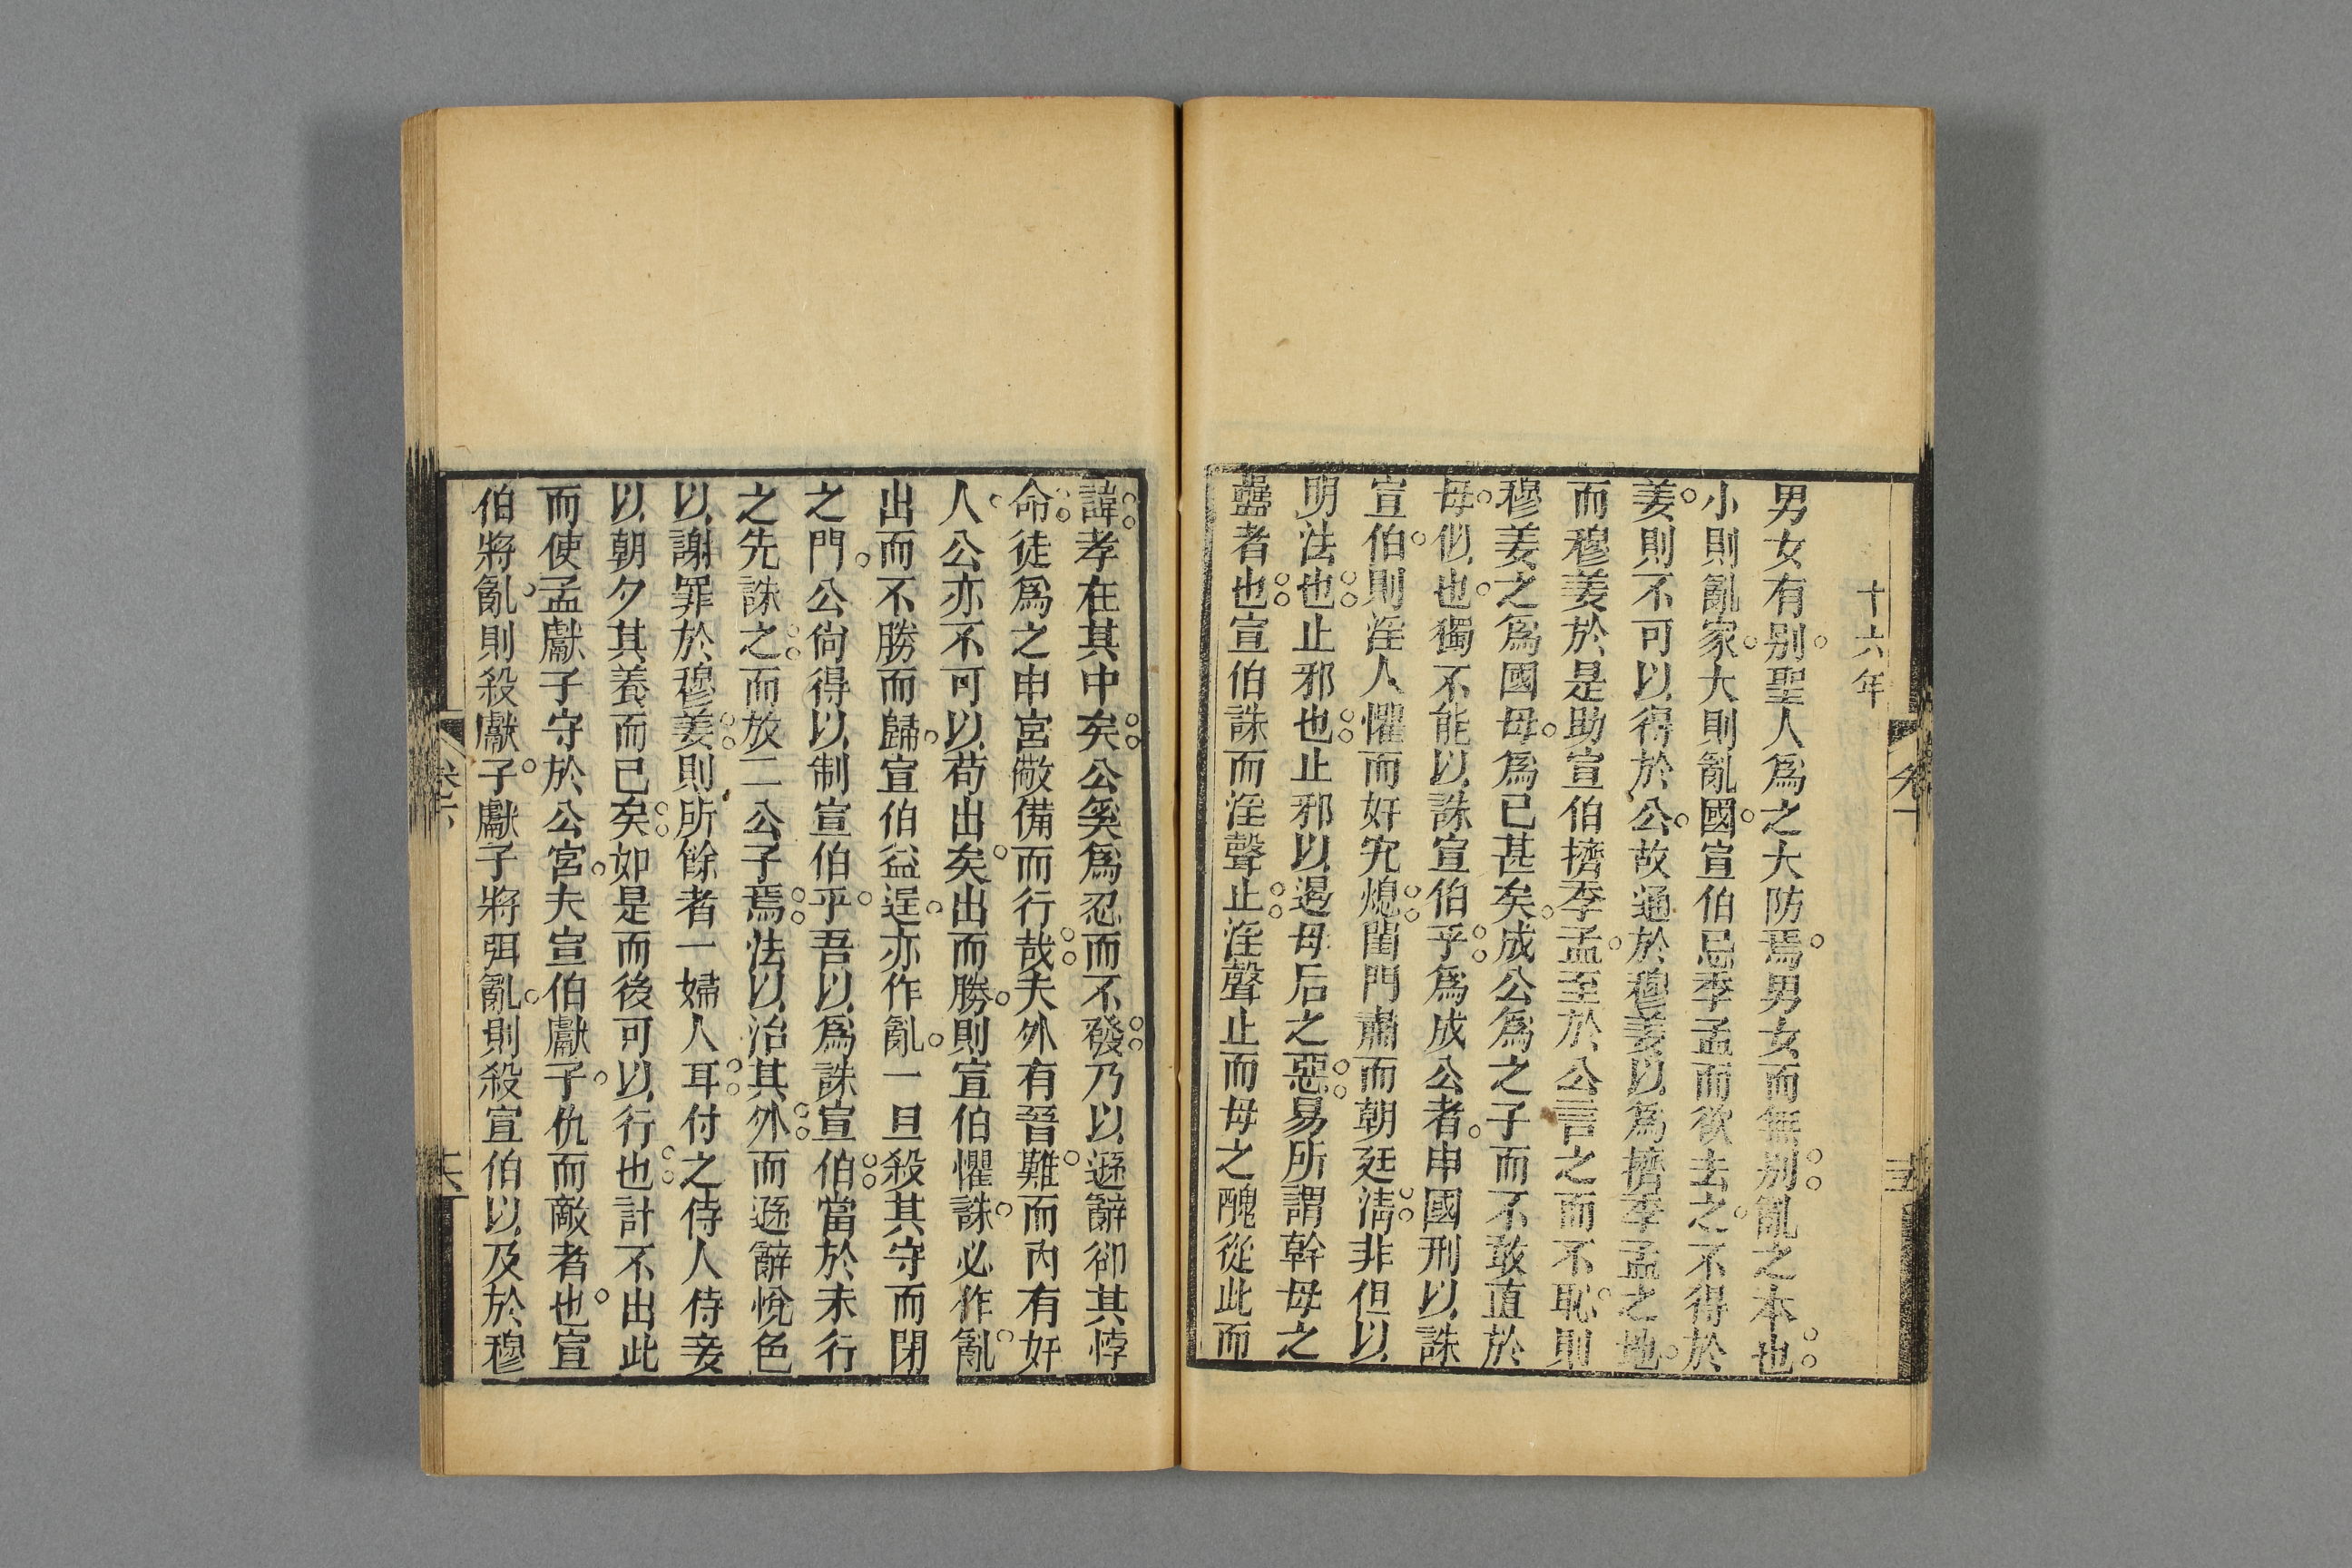 十六年
男女有别聖人爲之大防焉男女而無别亂之本也
小則亂家大則亂國宣伯忌季孟而欲去之不得於
姜則不可以得於公故通於穆姜以爲擠季孟之地
而穆姜於是助宣伯擠季孟至於公言之而不恥則
穆姜之爲國母爲已甚矣成公爲之子而不敢直於
母似也獨不能以誅宣伯乎爲成公者申國刑以誅
宣伯則淫人懼而奸宄熄閨門肅而朝廷淸非但以
明法也止邪也止邪以遏母后之惡易所謂幹母之
蠱者也宣伯誅而淫聲止淫聲止而母之醜從此而
諱孝在其中矣公奚爲忍而不發乃以遜辭卻其悖
命徒爲之申宮儆備而行哉夫外有晉難而內有奸
人公亦不可以苟出矣出而勝則宣伯懼誅必作亂
出而不勝而歸宣伯益逞亦作亂一旦殺其守而閉
之門公尙得以制宣伯乎吾以爲誅宣伯當於未行
之先誅之而放二公子焉法以治其外而遜辭悅色
以謝罪於穆姜則所餘者一婦人耳付之侍人侍妾
以朝夕其養而已矣如是而後可以行也計不出此
而使孟獻子守於公宮夫宣伯獻子仇而敵者也宣
伯將亂則殺獻子獻子將弭亂則殺宣伯以及於穆